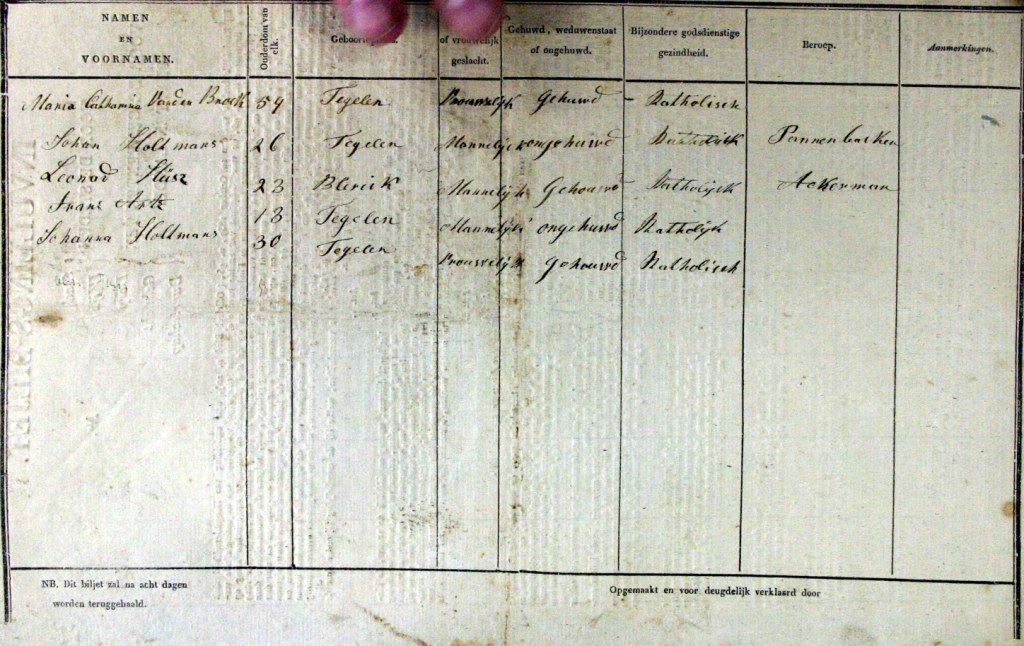 NAMEN EN VOORNAMEN. Ouderdom van elk. of vrouwelijk geslacht. Gehuwd, weduwenstaat of ongehuwd. Bijzondere godsdienstige gezindheid. Beroep. Aanmerkingen.
Maria Catharina Vanden Broek 59 Tegelen Vrouwelijk Gehuwd Katholieck
Johan Holtmans 26 Tegelen Mannelijck ongehuwd Katholijk Pannen backer
Leonad Hüsz 23 Blerick Mannelijk Gehouwd Katholijck Ackerman
Frans 18 Tegelen Mannelijk ongehuwd Katholijk
Johanna Holtmans 30 Tegelen Vrouwelijk Gehouwd Katholieck
NB. Dit biljet zal na acht dagen
worden teruggehaald.
Opgemaakt en voor deugdelijk verklaard door